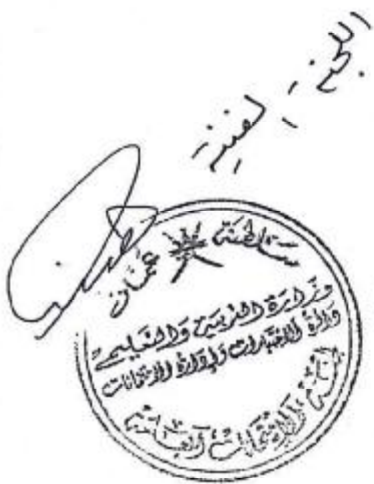 اللجنة الفنية
سلطنة عمان
وزارة التربية والتعليم
دائرة الاختبارات وإدارة الامتحانات